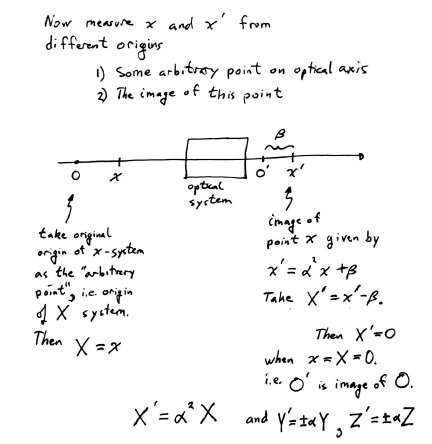 Now measure x and x' from
different origins
1) Some arbitrary point on optical axis
2) The image of this point
β
O x optical system O' x'
take original
origin of x-system
as the "arbitrary
point", i.e. origin
of X system.
Then X = x
image of
point x given by
x' = α²x + β
Take X' = x' - β.
Then X' = 0
when x = X = 0.
i.e. O' is image of O.
X' = α²X and Y' = ±αY, Z' = ±αZ